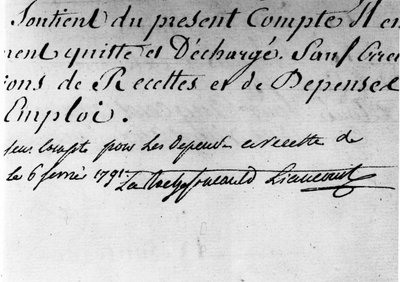 Soutient du présent Compte Il en
ment quitte et Déchargé. Sauf Erre
ions de Recettes et de Depenses
Emploi.
compte pour les depense et recette de
le 6 fevrié 1791. La Rochefoucauld Liancourt